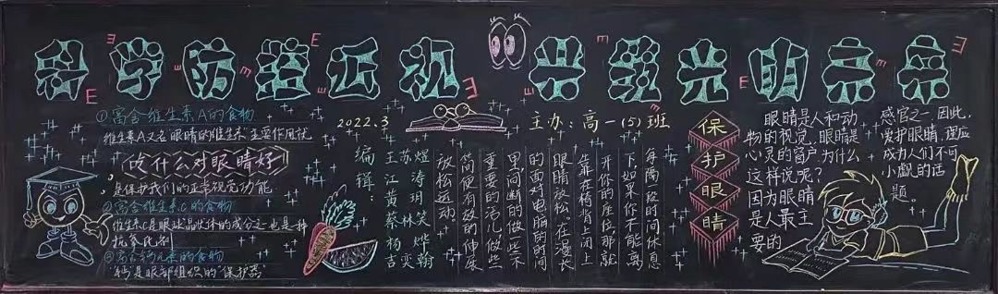 科学防控近视 共筑光明未来
①富含维生素A的食物
维生素A又名眼睛的维生素 主要作用就
吃什么对眼睛好
是保护我们的正常视觉功能
②富含维生素C的食物
维生素C是眼球晶状体的成分之一也是一种
抗氧化剂
③富含钙元素的食物
钙是眼部组织的“保护器”
2022.3
主办:高一(5)班
编辑:
王苏煜
江涛
黄玥
蔡林笑
杨烨
吉奕翰
每隔一段时间休息
下如果你不能离
开你的座位那就
靠在椅背上闭上
眼睛放松,在漫长
的面对电脑的时间
里间断的做些不
重要的活儿做些
简便有效的伸展
放松运动。
保护眼睛
眼睛是人和动
物的视觉,眼睛是
心灵的窗户,为什么
这样说呢?
因为眼睛
是人最主
要的
感官之一,因此,
爱护眼睛,理应
成为人们不可
小觑的话
题。